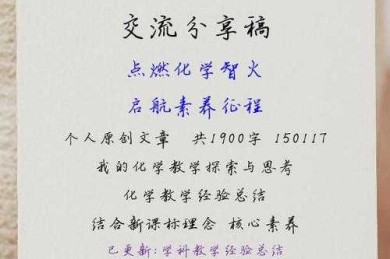 交流分享稿
点燃化学智火
启航素养征程
个人原创文章 共1900字 150117
我的化学教学探索与思考
化学教学经验总结
结合新课标理念 核心素养
已更新:学科教学经验总结